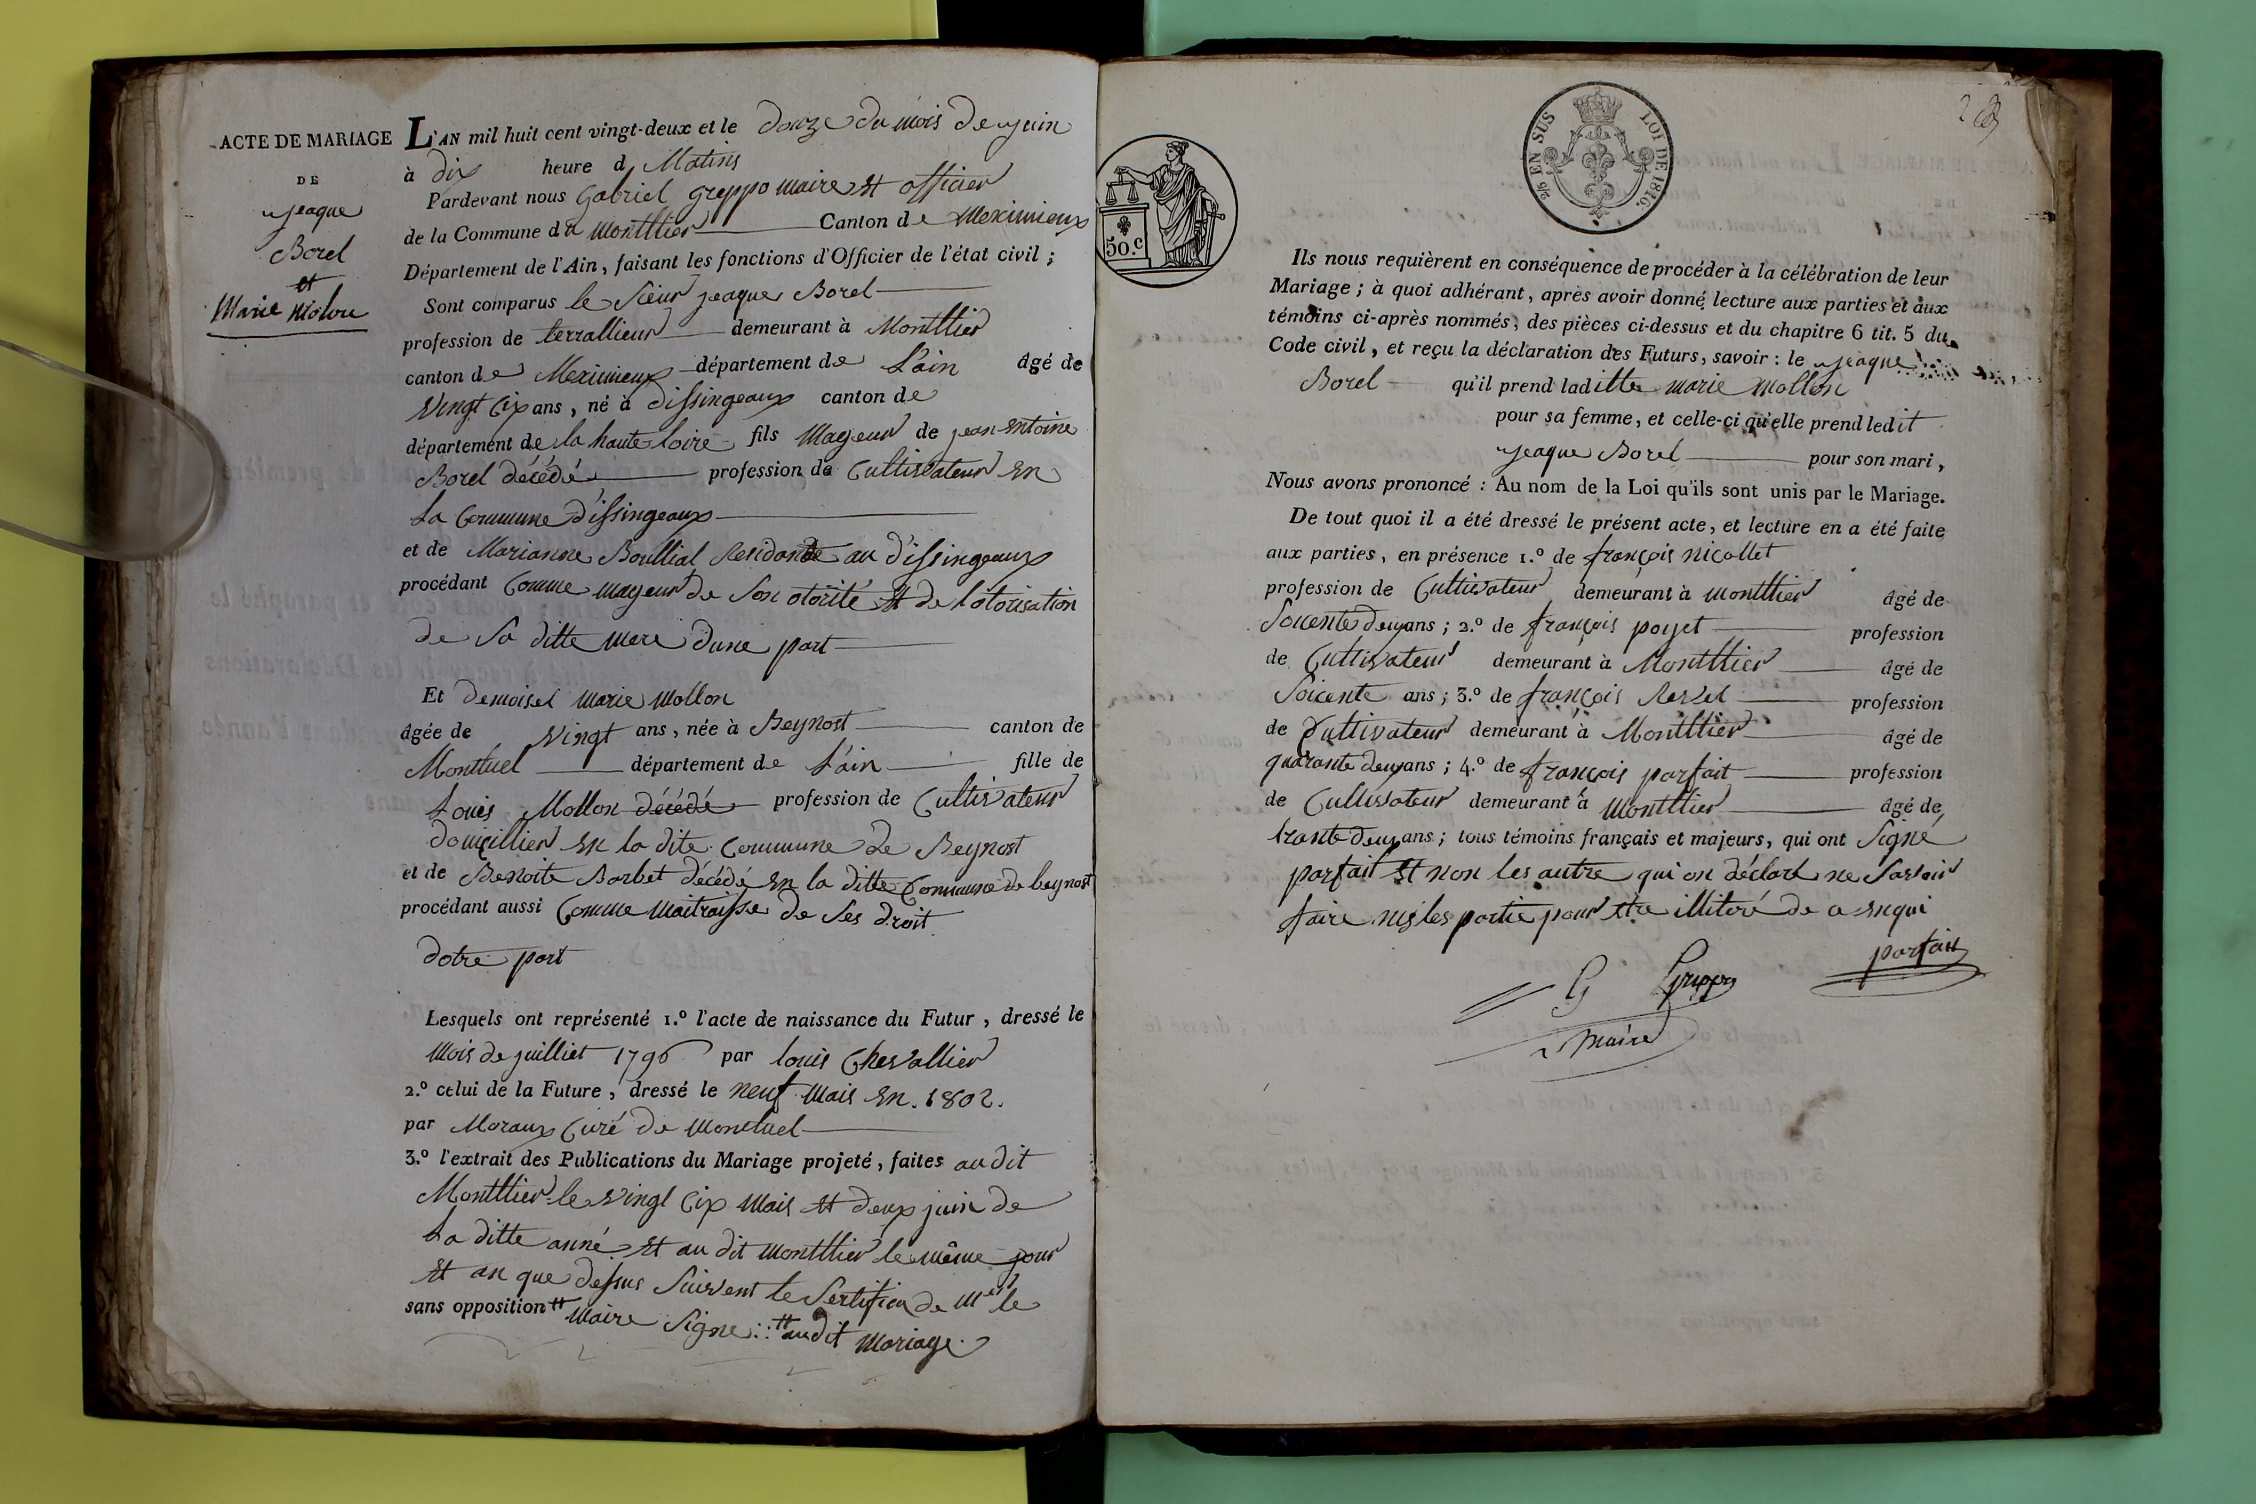 ACTE DE MARIAGE
DE
Jeaque
Borel
et
Marie Molon
L'AN mil huit cent vingt-deux et le douze du mois de juin
à dix heure d Matins
Pardevant nous Gabriel greppo maire et officier
de la Commune d a Monttlier Canton de Meximieux
Département de l'Ain, faisant les fonctions d'Officier de l'état civil ;
Sont comparus le Sieur jeaque Borel
profession de terrallieur demeurant à Monttlier
canton de Meximieux département de L'ain âgé de
Vingt cix ans, né à dissingeaux canton de
département de la haute loire fils Mageur de jean entoine
Borel décédé profession de Cultivateur en
La Commune d'issingeaux
et de Marianne Boullial Residante au d'issingeaux
procédant Comme mageur de Son otorité et de lotorisation
de Sa ditte mere dune part
Et demoisel marie mollon
âgée de vingt ans, née à Beynost canton de
Montluel département de L'ain fille de
Louis Mollon décédé profession de Cultivateur
domicillier en la dite Commune de Beynost
et de Benoite Barbet décédé en la ditte Commune de beynost
procédant aussi Comme maitraisse de Ses droit
dotre part
Lesquels ont représenté 1.º l'acte de naissance du Futur, dressé le
mois de juilliet 1796 par louis Chevallier
2.º celui de la Future, dressé le neuf mais en. 1802.
par Moraux Curé de montluel
3.º l'extrait des Publications du Mariage projeté, faites au dit
Monttlier le vingt cix mais et deux juin de
La ditte anné et au dit monttlier le même jour
et an que dessus Suivent le Sertifica de Mer le
sans opposition tt Maire Signe :: tt audit mariage.
50.c
2/6 EN SUS LOI DE 1816.
Ils nous requièrent en conséquence de procéder à la célébration de leur
Mariage ; à quoi adhérant, après avoir donné lecture aux parties et aux
témoins ci-après nommés, des pièces ci-dessus et du chapitre 6 tit. 5 du
Code civil, et reçu la déclaration des Futurs, savoir : le jeaque
Borel qu'il prend laditte marie mollon
pour sa femme, et celle-ci qu'elle prend ledit
jeaque Borel pour son mari,
Nous avons prononcé : Au nom de la Loi qu'ils sont unis par le Mariage.
De tout quoi il a été dressé le présent acte, et lecture en a été faite
aux parties, en présence 1.º de françois nicollet
profession de Cultivateur demeurant à monttlier âgé de
Soicente deux ans ; 2.º de françois poyet profession
de Cultivateur demeurant à Monttlier âgé de
Soicente ans ; 3.º de françois Revel profession
de Cultivateur demeurant à Monttlier âgé de
quarante deux ans ; 4.º de françois parfait profession
de Cultivateur demeurant à monttlier âgé de
trante deux ans ; tous témoins français et majeurs, qui ont Signé
parfait et non les autre qui on déclaré ne Savoir
faire ni les partie pour etre illitéré de ce enqui
parfait
G Greppo
maire